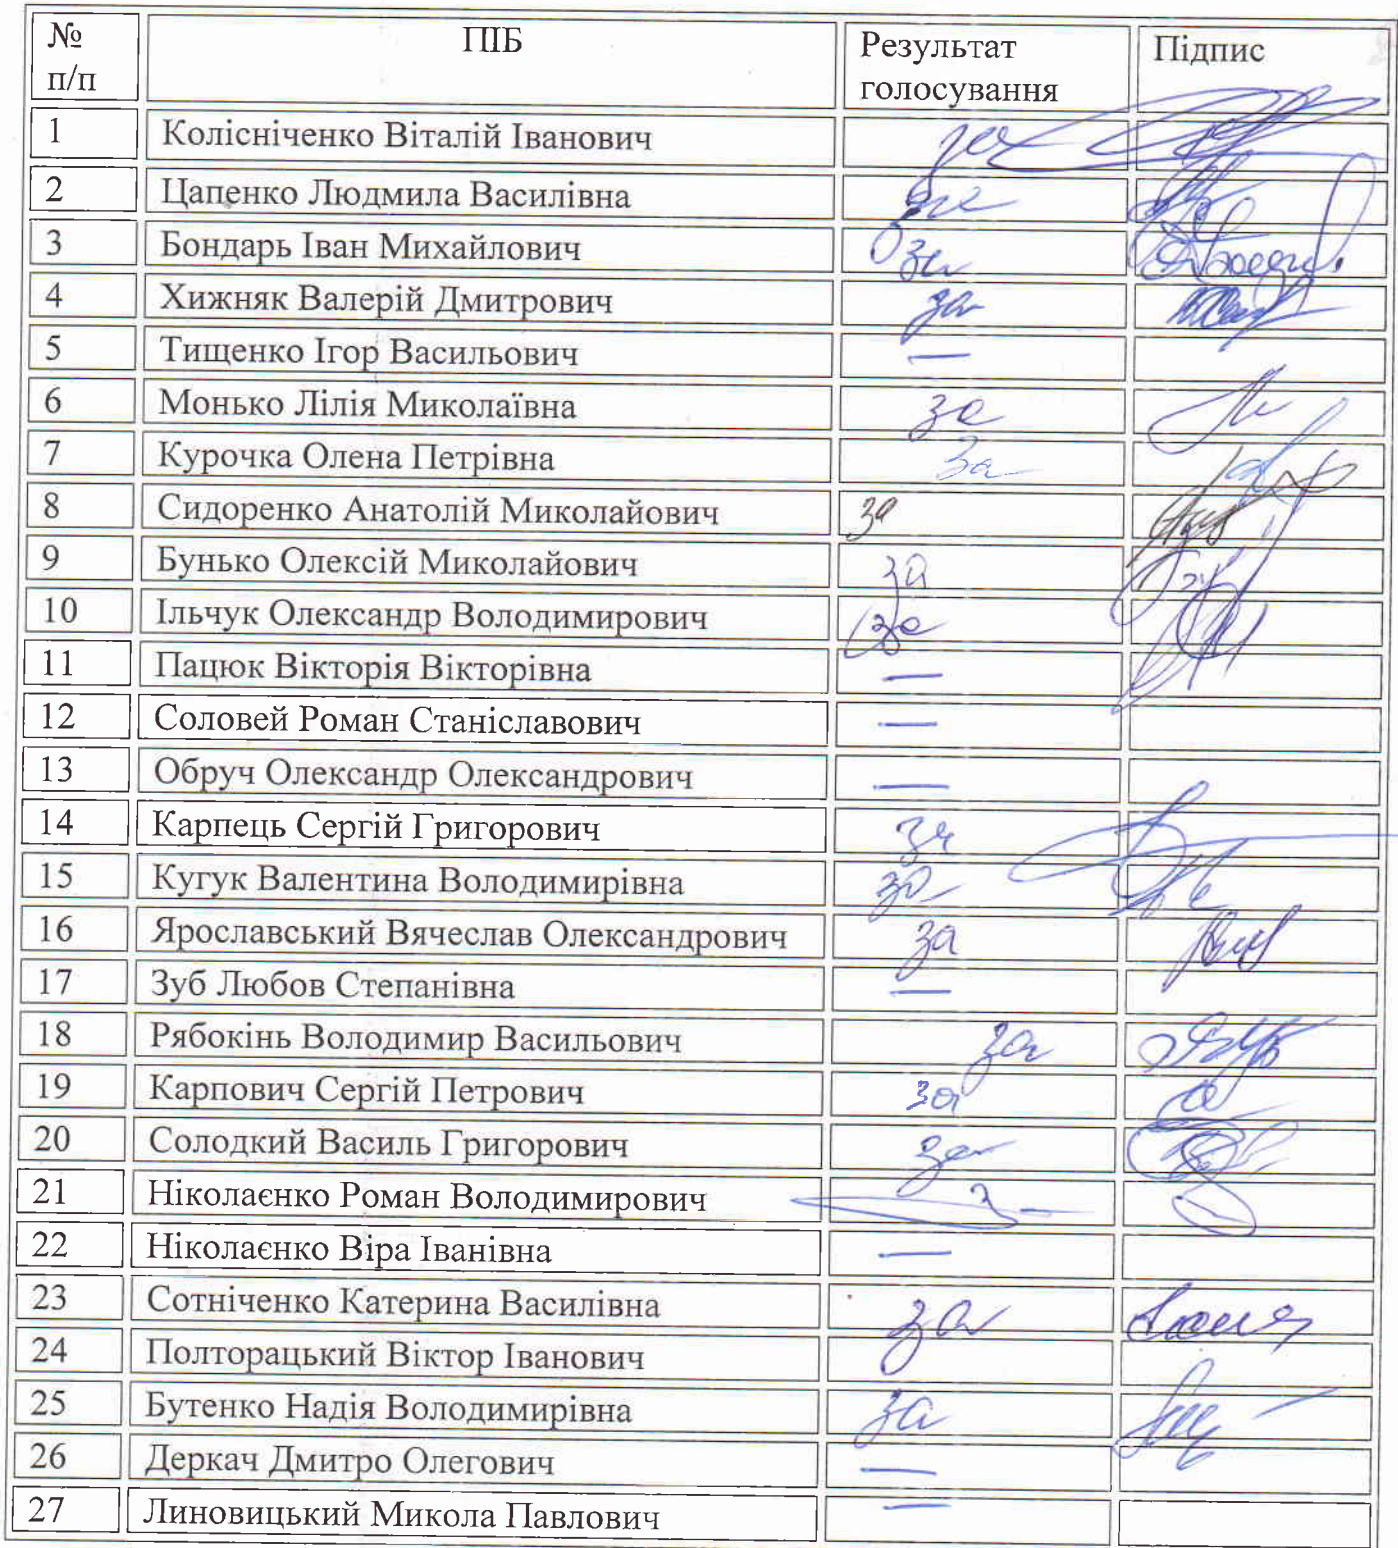 № п/п ПІБ Результат голосування Підпис
1 Колісніченко Віталій Іванович за
2 Цапенко Людмила Василівна за
3 Бондарь Іван Михайлович за
4 Хижняк Валерій Дмитрович за
5 Тищенко Ігор Васильович —
6 Монько Лілія Миколаївна за
7 Курочка Олена Петрівна За
8 Сидоренко Анатолій Миколайович за
9 Бунько Олексій Миколайович за
10 Ільчук Олександр Володимирович за
11 Пацюк Вікторія Вікторівна —
12 Соловей Роман Станіславович —
13 Обруч Олександр Олександрович —
14 Карпець Сергій Григорович за
15 Кугук Валентина Володимирівна за
16 Ярославський Вячеслав Олександрович за
17 Зуб Любов Степанівна —
18 Рябокінь Володимир Васильович за
19 Карпович Сергій Петрович за
20 Солодкий Василь Григорович за
21 Ніколаєнко Роман Володимирович
22 Ніколаєнко Віра Іванівна —
23 Сотніченко Катерина Василівна за
24 Полторацький Віктор Іванович
25 Бутенко Надія Володимирівна за
26 Деркач Дмитро Олегович —
27 Линовицький Микола Павлович —